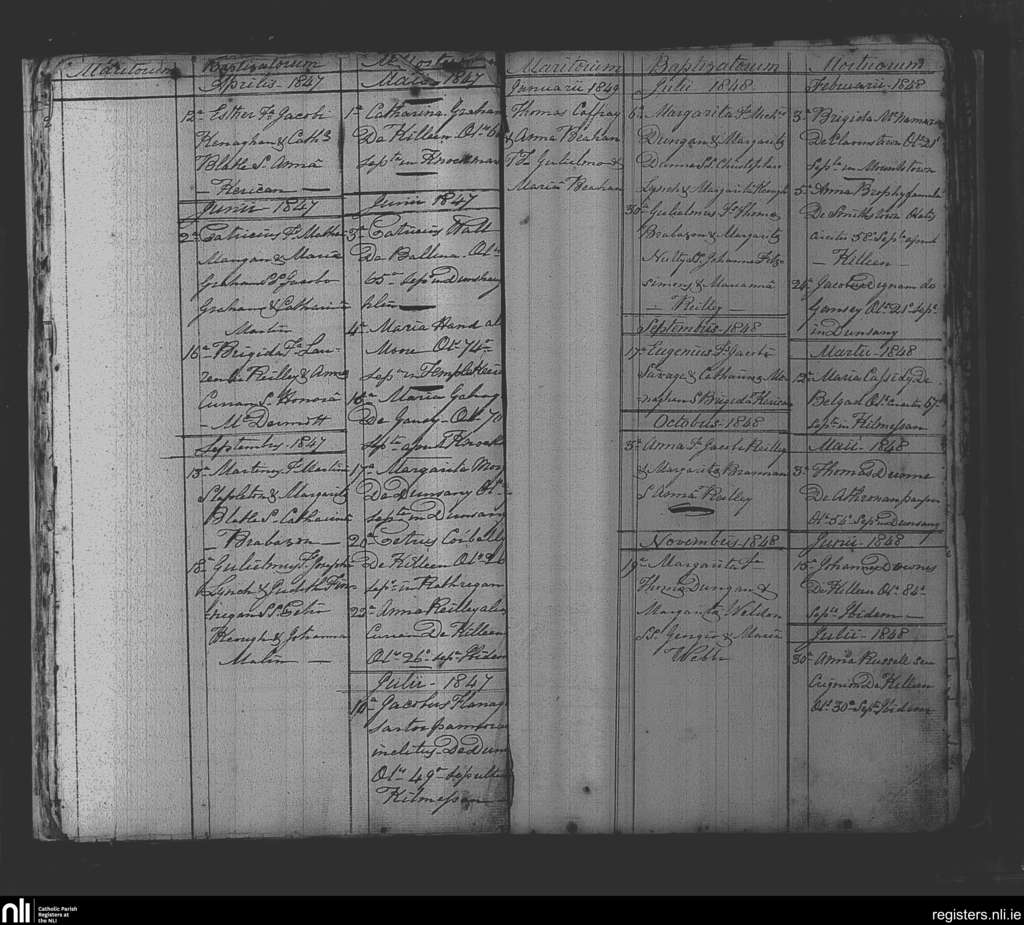 Maritorum
Baptizatorum
Aprilis 1847
12a Esther Fa Jacobi
Kenaghan & Cath
Blake Sa Anna
Kerican
Junii 1847
2a Patricius Fs
Mangan & Maria
Graham Ss Jacobo
Graham & Catharina
Martin
16a Brigida Fa Lau-
Reilley & Anna
Curran Sa Honora
McDermott
Septembris 1847
13a Martinus Fs Martini
Stapleton & Margarita
Blake Sa Catharina
Brabazon
18a Gulielmus Fs Joseph
Lynch & Judith Fin-
negan Ss Petro
Keough & Johanna
Malin
Mortuorum
Maii 1847
1a Catharina Graham
De Killeen Obt
septa in Knockmar
Junii 1847
3a Patricius Wall
De Ballina Obt
65 septs in Dunshaug
hlin
4a Maria Hand al
Moore Obt 74
septa in Temple
16a Maria
De Obt 70
septa apud
17a Margarita
De Dunsany Obt
septa in Dunsany
20a Petrus Corbally
De Killeen Obt
septs in Rathregan
22a Anna Reilley alias
Curran De Killeen
Obt 26 septa Ibidem
Julii - 1847
16a Jacobus Flanag
sartor
De Dun
Obt 49 sepult
Kilmessan
Maritorum
Januarii 1849
Thomas Caffray
& Anna Beahan
TT Gulielmo &
Maria Beahan
Baptizatorum
Julii 1848
6a Margarita Fa Michl
Dungan & Margarita
Dunne Ss Christophero
Lynch & Margarita Keough
30a Gulielmus Fs Thoma
Brabazon & Margarita
Ss Johanne Fitz-
simons & Marianna
Reilley
Septembris 1848
17a Eugenius Fs Jacobi
Savage & Catharina Mo-
naghan Sa Brigeda Kerican
Octobris 1848
3a Anna Fa Jacobi Reilley
& Margarita Brannan
Sa Anna Reilley
Novembris 1848
19a Margarita Fa
Thoma Dungan &
Margarita Weldon
Ss Georgio & Maria
Webb
Mortuorum
Februarii 1848
3a Brigida McNamara
De Clarnstown Obt 21
septa in Moundstown
5a Anna Brophy famula
De Smithstown Ætatis
circiter 58 Septa apud
Killeen
24a Jacobus Dignam de
Gansey Obt 21 septs
in Dunsany
Martii - 1848
12a Maria Cassidy De
Belgad Obt circiter 67
septa in Kilmessan
Maii - 1848
3a Thomas Dunne
De Athronan pauper
Obt 54 Septs in Dunsany
Junii - 1848
15a Johannes Downes
De Killeen Obt 84
Septs Ibidem
Julii - 1848
30a Anna Russell seu
De Killeen
Obt 30a Septa Ibidem
nli Catholic Parish
Registers at
the NLI
registers.nli.ie